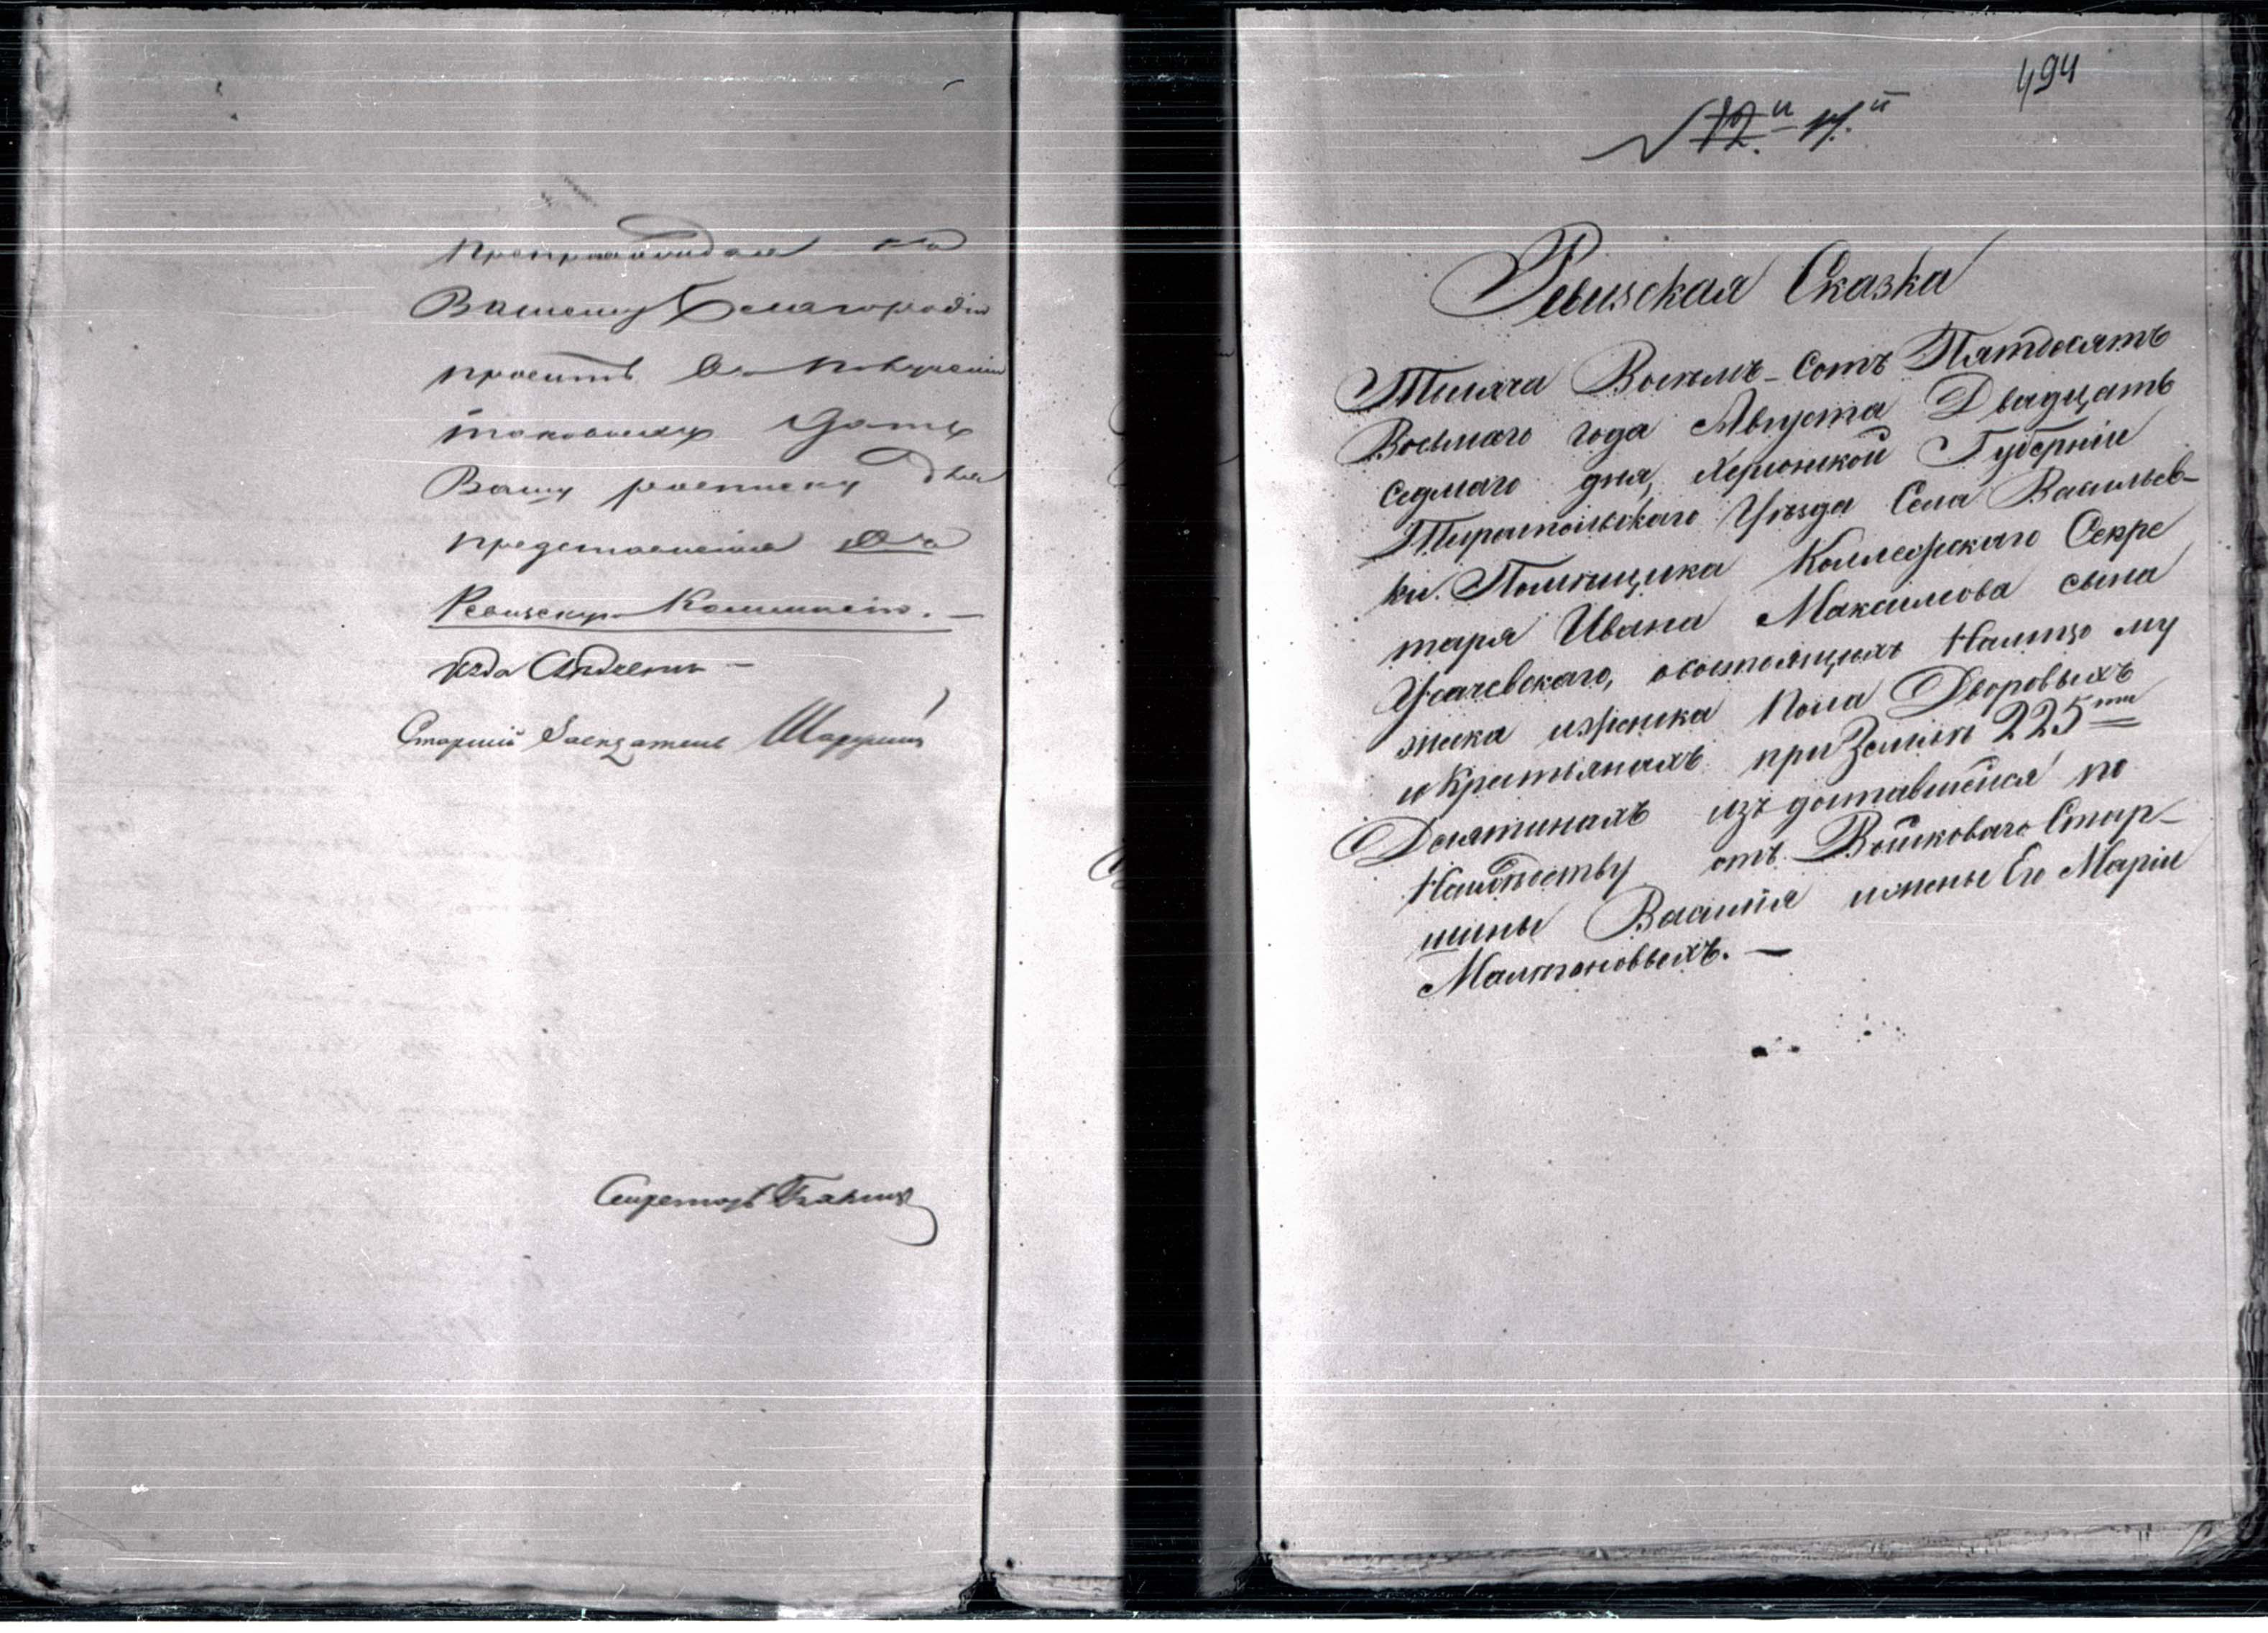 препровождая къ
Вашему Благородію
проситъ о полученіи
таковыхъ дать
Вашу росписку для
представленія въ
Ревизскую Коммисію. —
Старшій Засѣдатель
Секретарь
494
Ревизская Сказка
Тысяча Восемь-Сотъ Пятдесятъ
Восьмаго года Августа Двадцать
седмаго дня, Херсонской Губерніи
Тираспольскаго Уѣзда Села Васильев-
ки. Помѣщика Коллежскаго Секре
таря Ивана Максимова сына
Усачевскаго, о состоящихъ Налицо му
жеска и женска Пола Дворовыхъ
и Крестьянахъ при Землѣ 225ти
Десятинахъ изъ доставшейся по
Наслѣдству отъ Войсковаго Стар-
шины Василія и жены Его Маріи